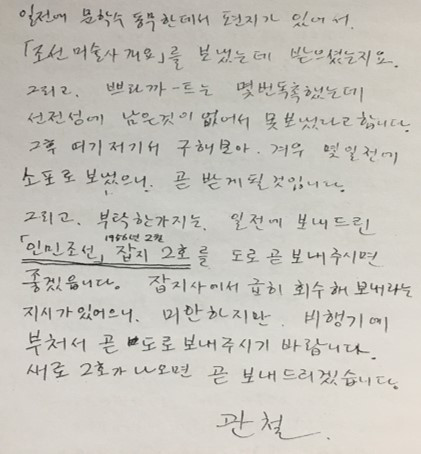 일전에 문학수 동무한테서 편지가 있어서.
「조선미술사개요」를 보냈는데 받으셨는지요.
그리고. 쁘라까-트는 몇번독촉했는데
선전성에 남은것이 없어서 못보냈다고합니다
그후 여기저기서 구해모아. 겨우 몇일전에
소포로보냈으니. 곧 받게될것입니다.
그리고. 부탁한가지는. 일전에 보내드린
1956년 2월
「인민조선」 잡지 2호를 도로곧보내주시면
좋겠읍니다. 잡지사에서 급히 회수해보내라는
지시가있어으니. 미안하지만. 비행기에
부쳐서 곧 도로보내주시기 바랍니다.
새로 2호가나오면 곧 보내드리겠습니다.
관철.